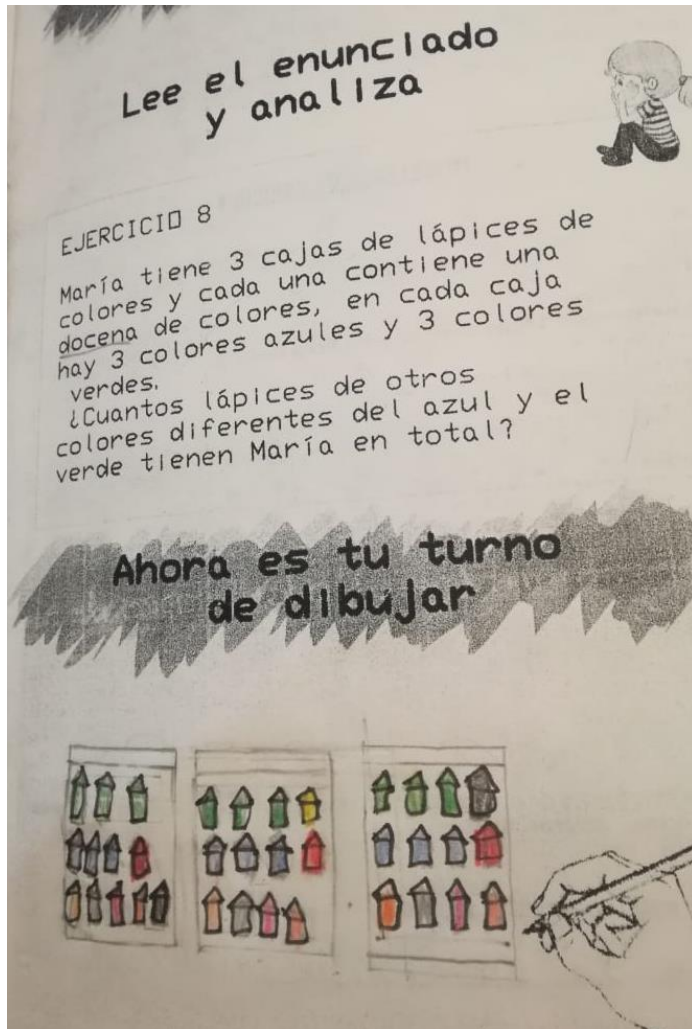 Lee el enunciado
y analiza
EJERCICIO 8
María tiene 3 cajas de lápices de
colores y cada una contiene una
docena de colores, en cada caja
hay 3 colores azules y 3 colores
verdes.
¿Cuantos lápices de otros
colores diferentes del azul y el
verde tienen María en total?
Ahora es tu turno
de dibujar